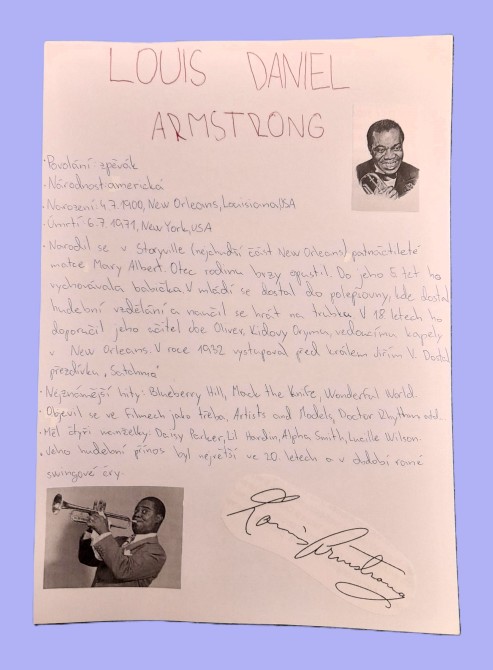 LOUIS DANIEL
ARMSTRONG
· Povolání: zpěvák
· Národnost: americká
· Narození: 4.7.1900, New Orleans, Louisiana, USA
· Úmrtí: 6.7.1971, New York, USA
· Narodil se v Storyville (nejchudší část New Orleans) patnáctileté
matce Mary Albert. Otec rodinu brzy opustil. Do jeho 5 let ho
vychovávala babička. V mládí se dostal do polepšovny, kde dostal
hudební vzdělání a naučil se hrát na trubku. V 18 letech ho
doporučil jeho učitel Joe Oliver, Kidovy Orymu, vedoucímu kapely
v New Orleans. V roce 1932 vystupoval před králem Jiřím V. Dostal
přezdívku „Satchmo"
· Nejznámější hity: Blueberry Hill, Mack the Knife, Wonderful World.
· Objevil se ve Filmech jako třeba, Artists and Models, Doctor Rhythm atd...
· Měl čtyři manželky: Daisy Parker, Lil Hardin, Alpha Smith, Lucille Wilson.
· Jeho hudební přínos byl největší ve 20. letech a v období rané
swingové éry.
Louis Armstrong